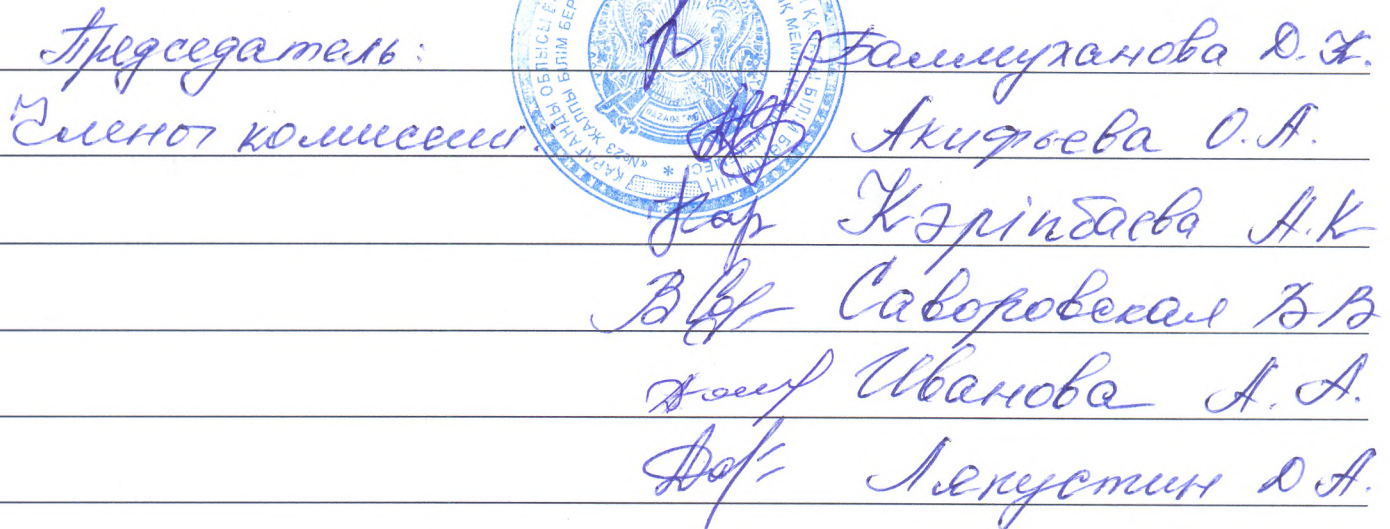 Председатель: Баймуханова Д.Ж.
Члены комиссии: Акифьева О.А.
Кәріпбаева А.К
Саворовская В В
Иванова А.А.
Ляпустин Д А.
ҚАРАҒАНДЫ ОБЛЫСЫ
«№23 ЖАЛПЫ БІЛІМ БЕР